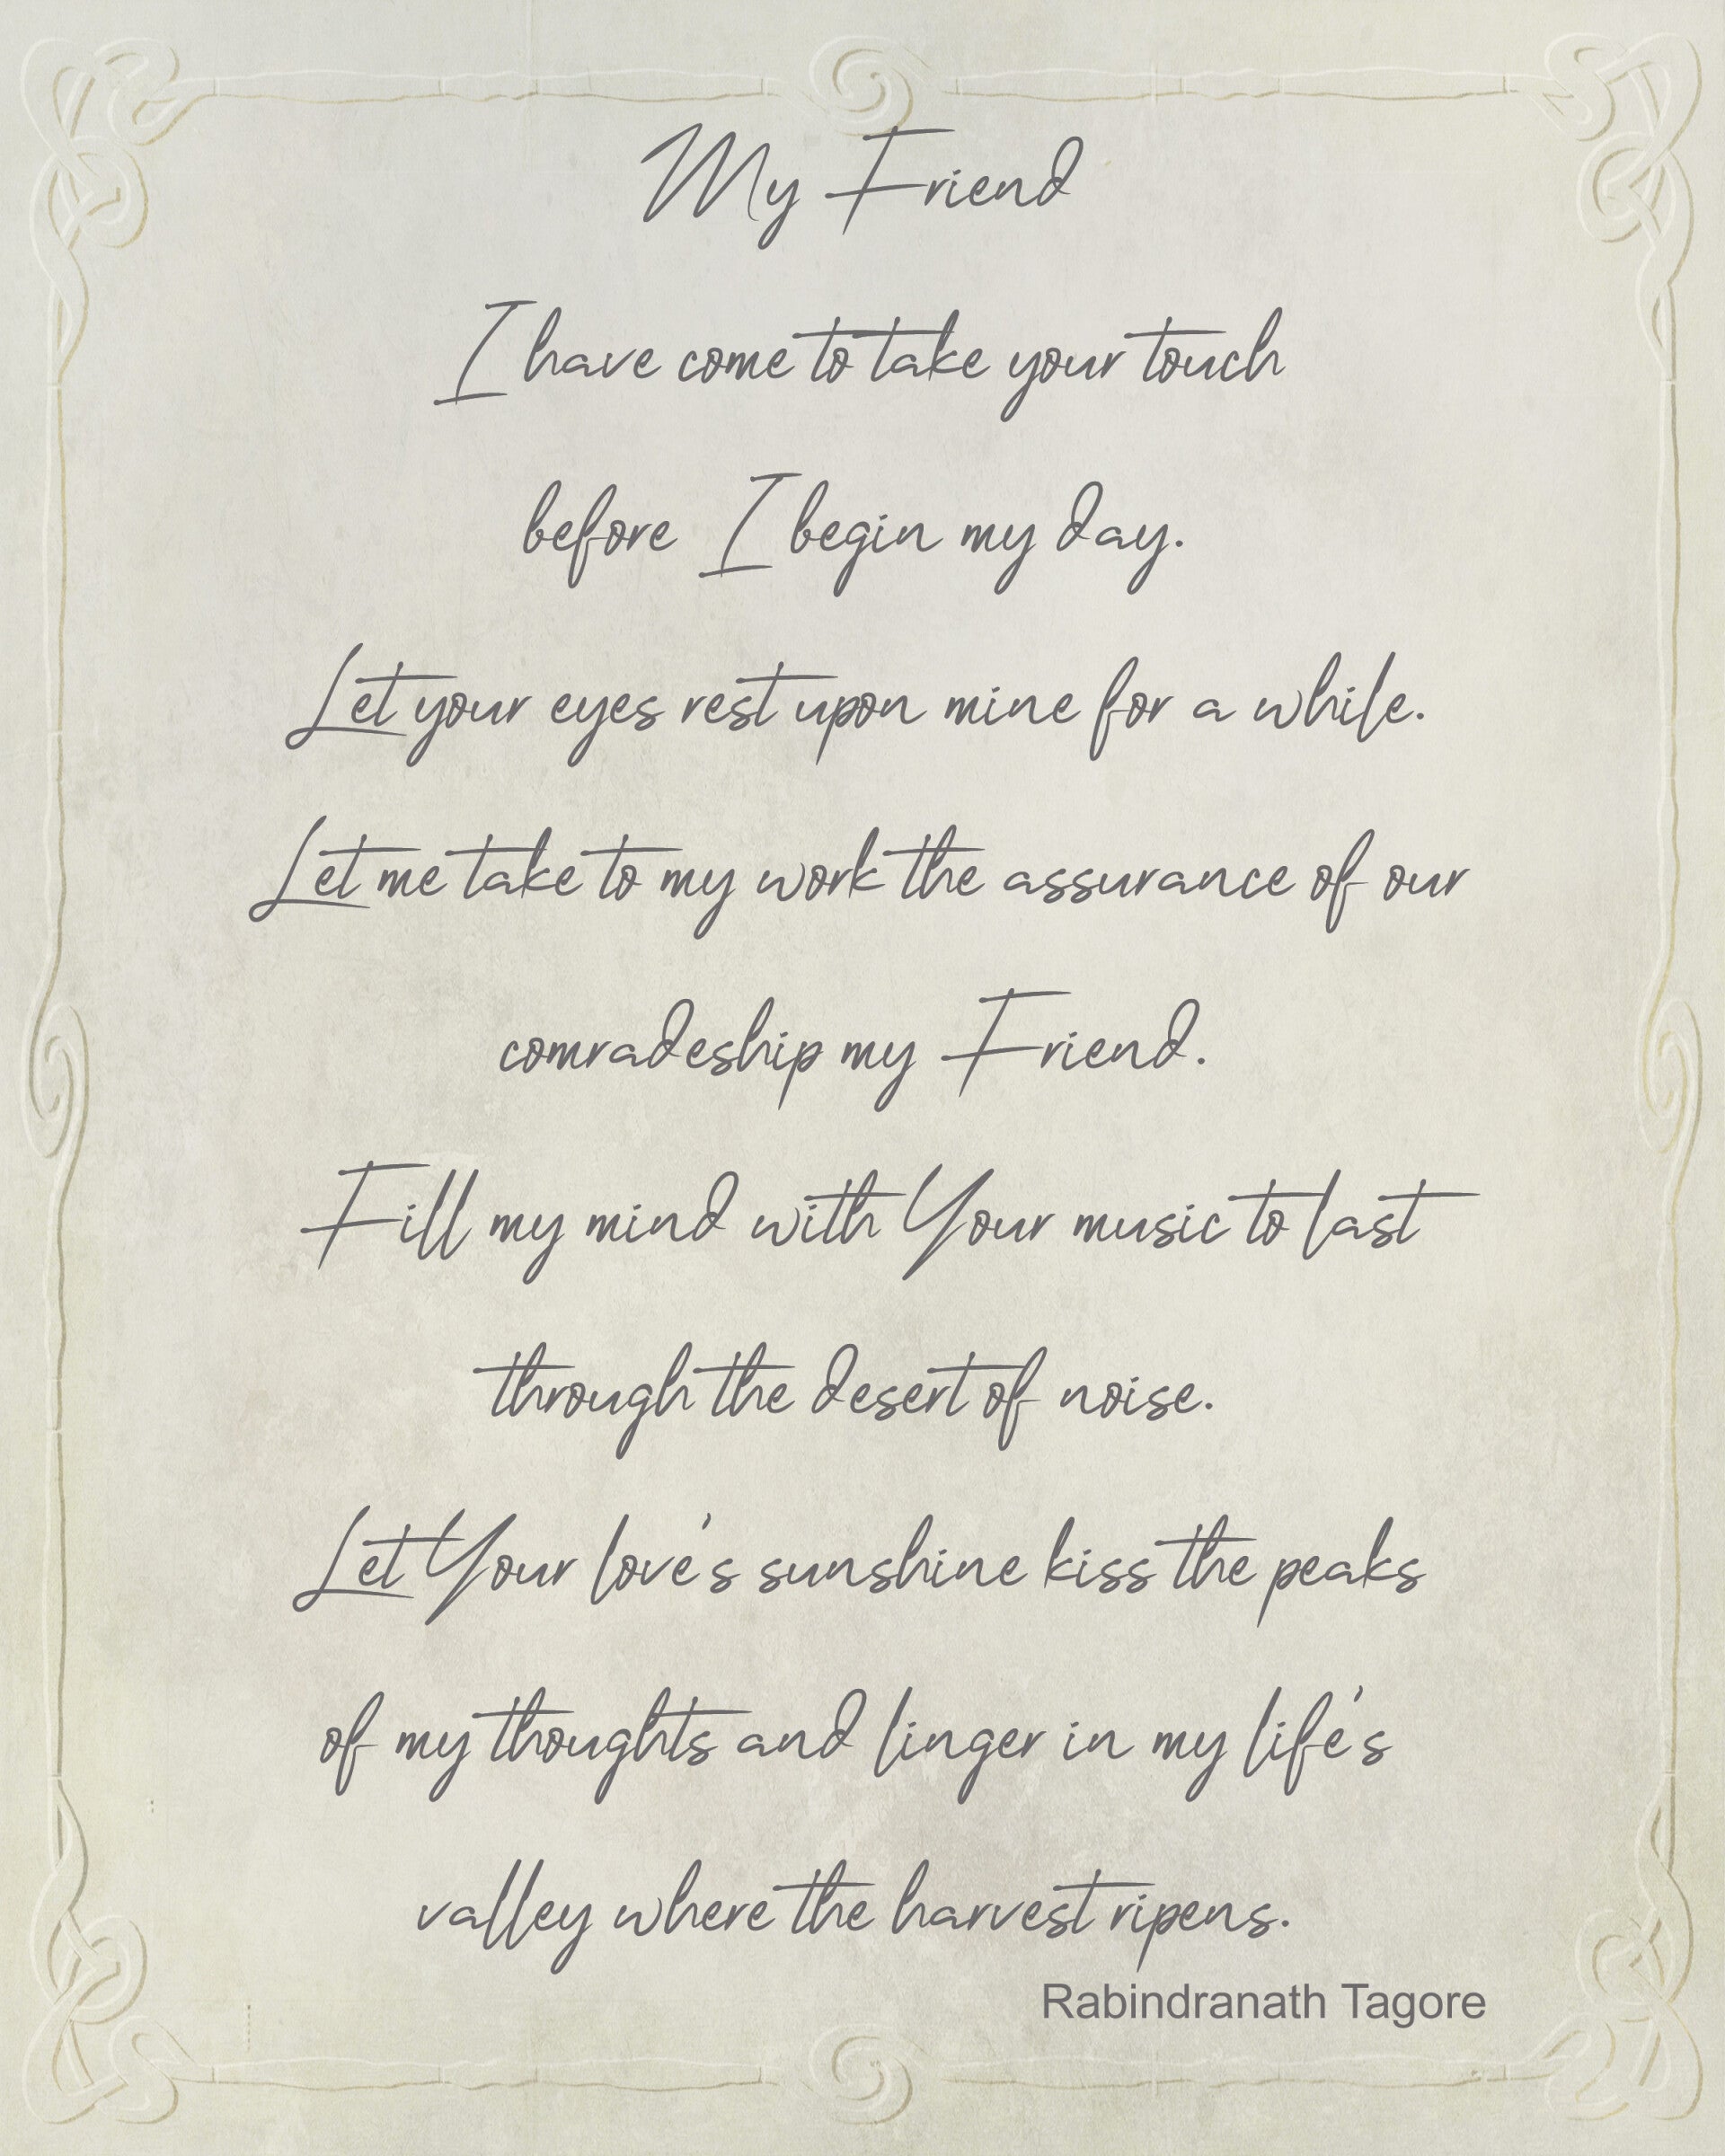 My Friend
I have come to take your touch
before I begin my day.
Let your eyes rest upon mine for a while.
Let me take to my work the assurance of our
comradeship my Friend.
Fill my mind with Your music to last
through the desert of noise.
Let Your love's sunshine kiss the peaks
of my thoughts and linger in my life's
valley where the harvest ripens.
Rabindranath Tagore